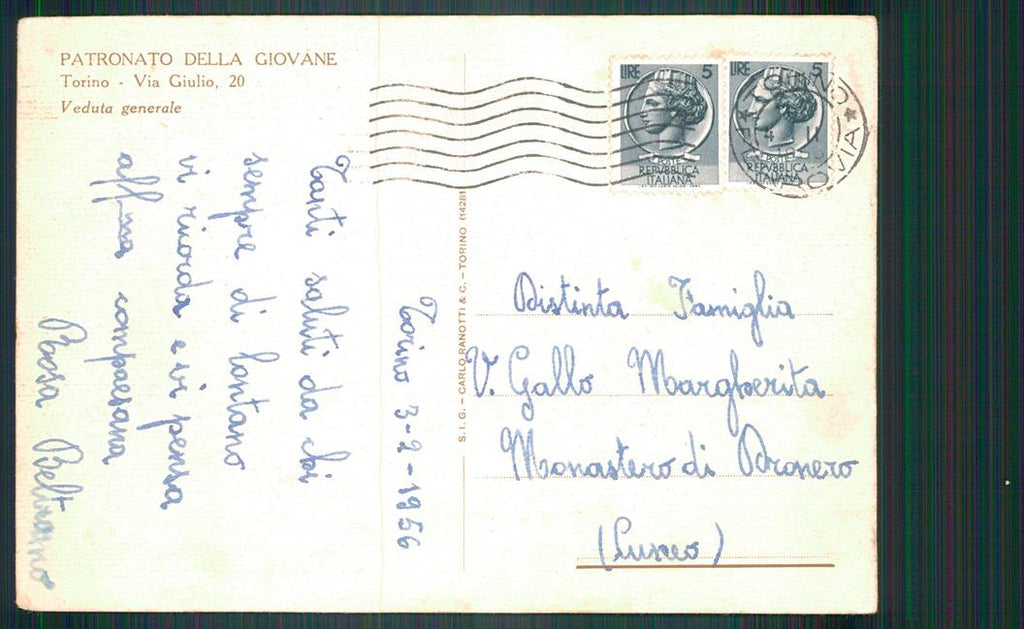 PATRONATO DELLA GIOVANE
Torino - Via Giulio, 20
Veduta generale
Torino 3-2-1956
Tanti saluti da chi
sempre di lontano
vi ricorda e vi pensa
aff-ma compaesana
Rosa Beltramo
S.I.G. - CARLO RANOTTI & C. - TORINO (1428)
LIRE 5
POSTE
REPVBBLICA
ITALIANA
LIRE 5
POSTE
REPVBBLICA
ITALIANA
Distinta Famiglia
V. Gallo Margherita
Monastero di Dronero
(Cuneo)